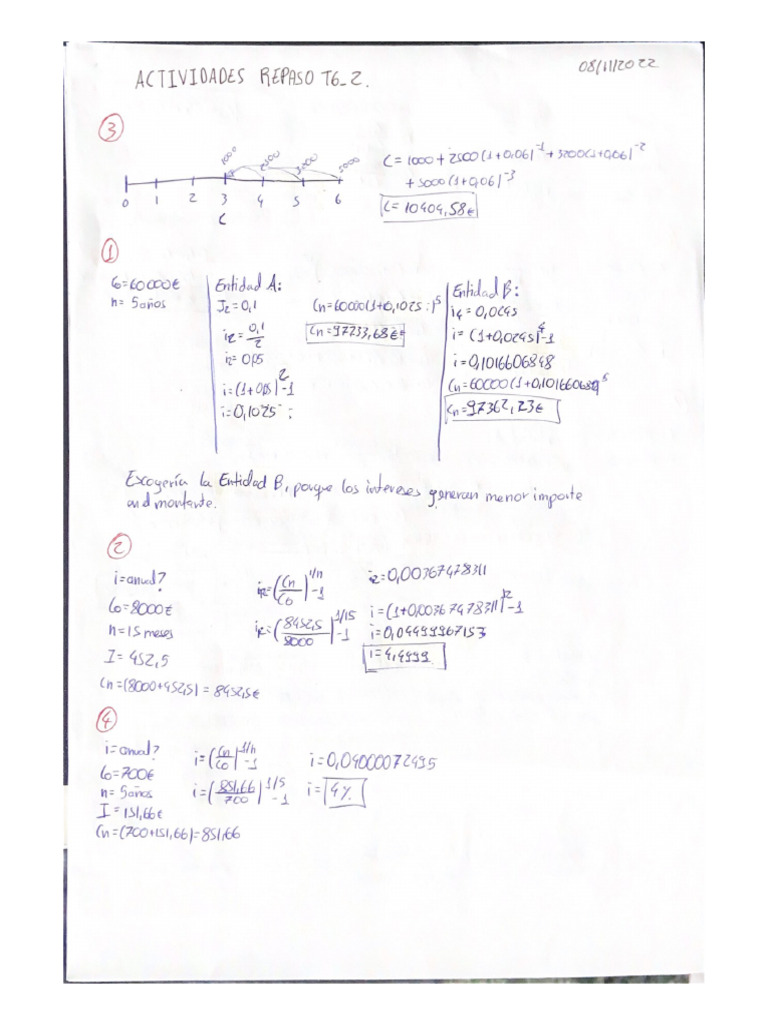 ACTIVIDADES REPASO T6_2.
08/11/2022
③
1000 2500 3000 5000
0 1 2 3 4 5 6
C
C = 1000 + 2500(1+0,06)^-1 + 3200(1+0,06)^-2
+ 5000(1+0,06)^-3
C = 10404,58€
①
Co = 60000€
n = 5 años
Entidad A:
J2 = 0,1
i2 = 0,1/2
i2 = 0,05
i = (1+0,05)^2 - 1
i = 0,1025
Cn = 60000(1+0,1025)^5
Cn = 97733,68€
Entidad B:
i4 = 0,0245
i = (1+0,0245)^4 - 1
i = 0,1016606848
Cn = 60000(1+0,101660684)^5
Cn = 97362,23€
Escogería la Entidad B, porque los intereses generan menor importe
en el montante.
②
i = anual?
Co = 8000€
n = 15 meses
I = 452,5
Cn = (8000+452,5) = 8452,5€
i12 = (Cn/Co)^1/n - 1
i12 = (8452,5/8000)^1/15 - 1
i12 = 0,00367478311
i = (1+0,00367478311)^12 - 1
i = 0,04499967153
i = 4,4999
④
i = anual?
Co = 700€
n = 5 años
I = 151,66€
Cn = (700+151,66) = 851,66
i = (Cn/Co)^1/n - 1
i = (851,66/700)^1/5 - 1
i = 0,04000072495
i = 4%